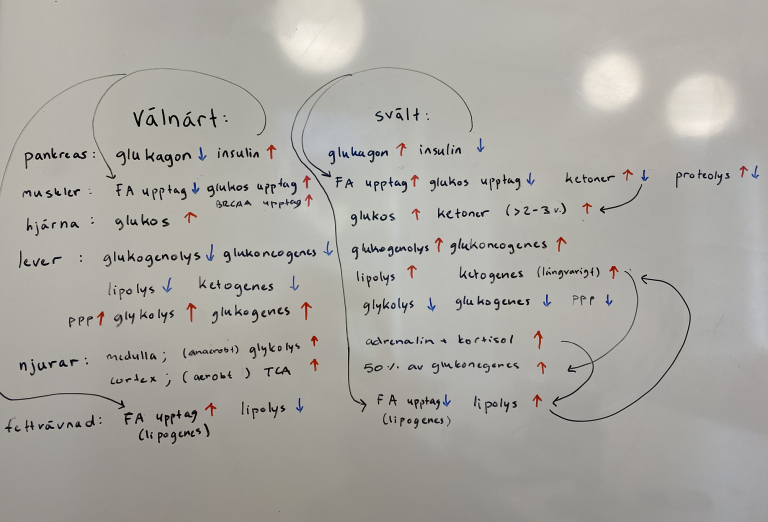 Välnärt: svält:
pankreas: glukagon ↓ insulin ↑ glukagon ↑ insulin ↓
muskler: FA upptag ↓ glukos upptag ↑ FA upptag ↑ glukos upptag ↓ ketoner ↑ ↓ proteolys ↑ ↓
BRCAA upptag ↑
hjärna: glukos ↑ glukos ↑ ketoner (>2-3 v.) ↑
lever: glukogenolys ↓ glukoneogenes ↓ glukogenolys ↑ glukoneogenes ↑
lipolys ↓ ketogenes ↓ lipolys ↑ ketogenes (långvarigt) ↑
PPP ↑ glykolys ↑ glukogenes ↑ glykolys ↓ glukogenes ↓ PPP ↓
njurar: medulla; (anaerobt) glykolys ↑ adrenalin + kortisol ↑
cortex; (aerobt) TCA ↑ 50% av glukonegenes ↑
fettvävnad: FA upptag ↑ lipolys ↓ FA upptag ↓ lipolys ↑
(lipogenes) (lipogenes)